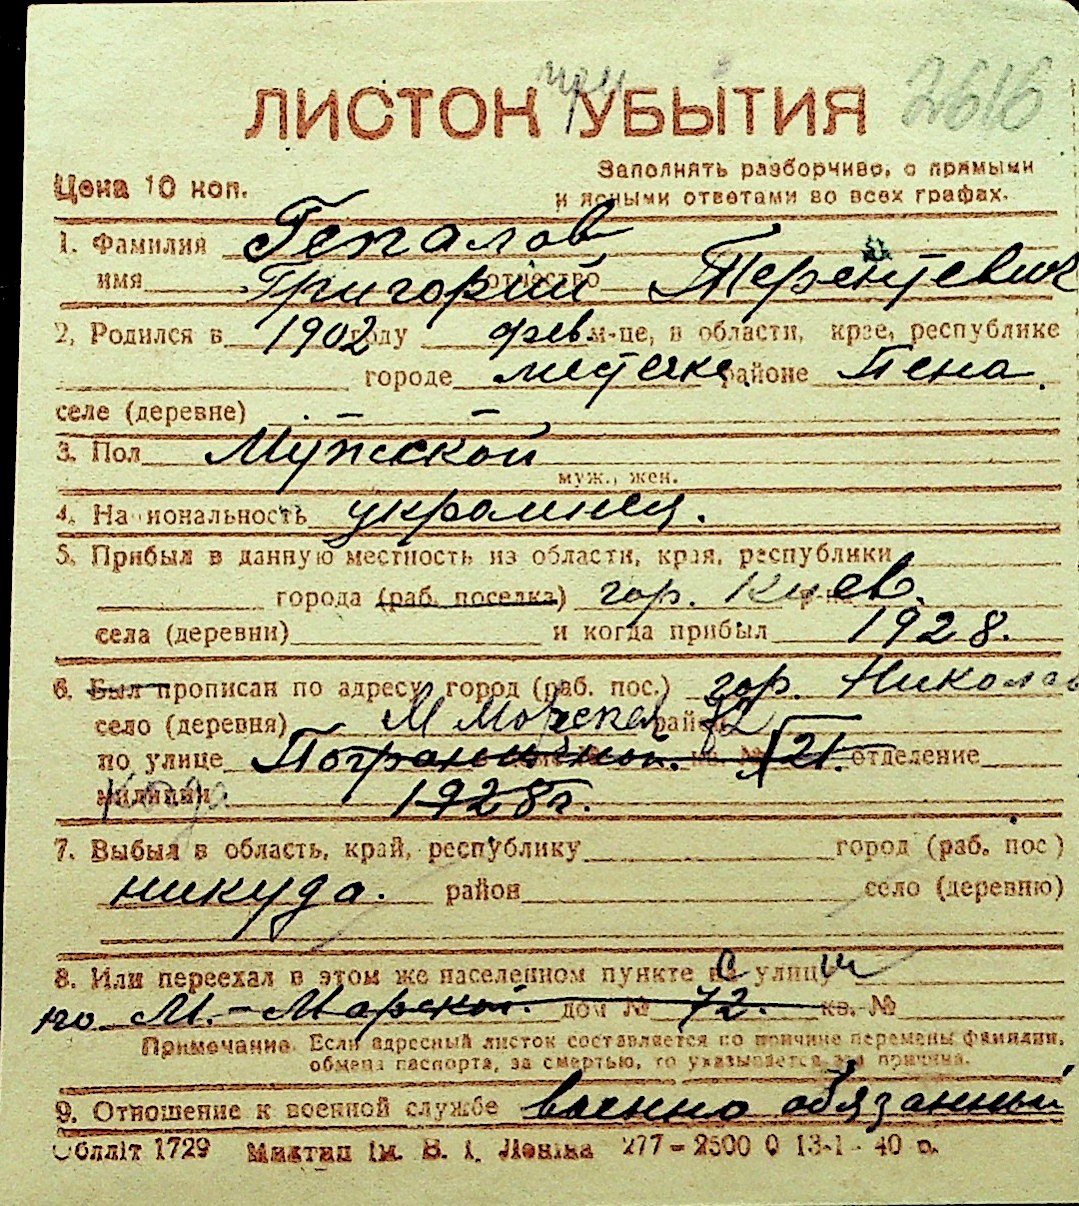 при 2616
ЛИСТОК УБЫТИЯ
Цена 10 коп.
Заполнять разборчиво, с прямыми
и ясными ответами во всех графах.
1. Фамилия Гепалов
имя Григорий отчество Терентевич
2. Родился в 1902 году фев м-це, в области, крае, республике
городе местечке районе Пена
селе (деревне) – –
3. Пол Мужской
муж., жен.
4. Национальность украинец.
5. Прибыл в данную местность из области, края, республики
города (раб. поселка) гор. Киев.
села (деревни) и когда прибыл 1928.
6. Был прописан по адресу, город (раб. пос.) гор. Николаев
село (деревня) М Морская район 72
по улице Пограничной. кв. № 121. отделение
милиции когда 1928 г.
7. Выбыл в область, край, республику город (раб. пос)
никуда. район село (деревню)
8. Или переехал в этом же населенном пункте с улицы
по М.-Марской. дом № 72. кв. №
Примечание. Если адресный листок составляется по причине перемены фамилии,
обмена паспорта, за смертью, то указывается эта причина.
9. Отношение к военной службе военно обязанный
Облліт 1729 Миктип ім. В. І. Леніна 277–2500 0 13-1-40 р.